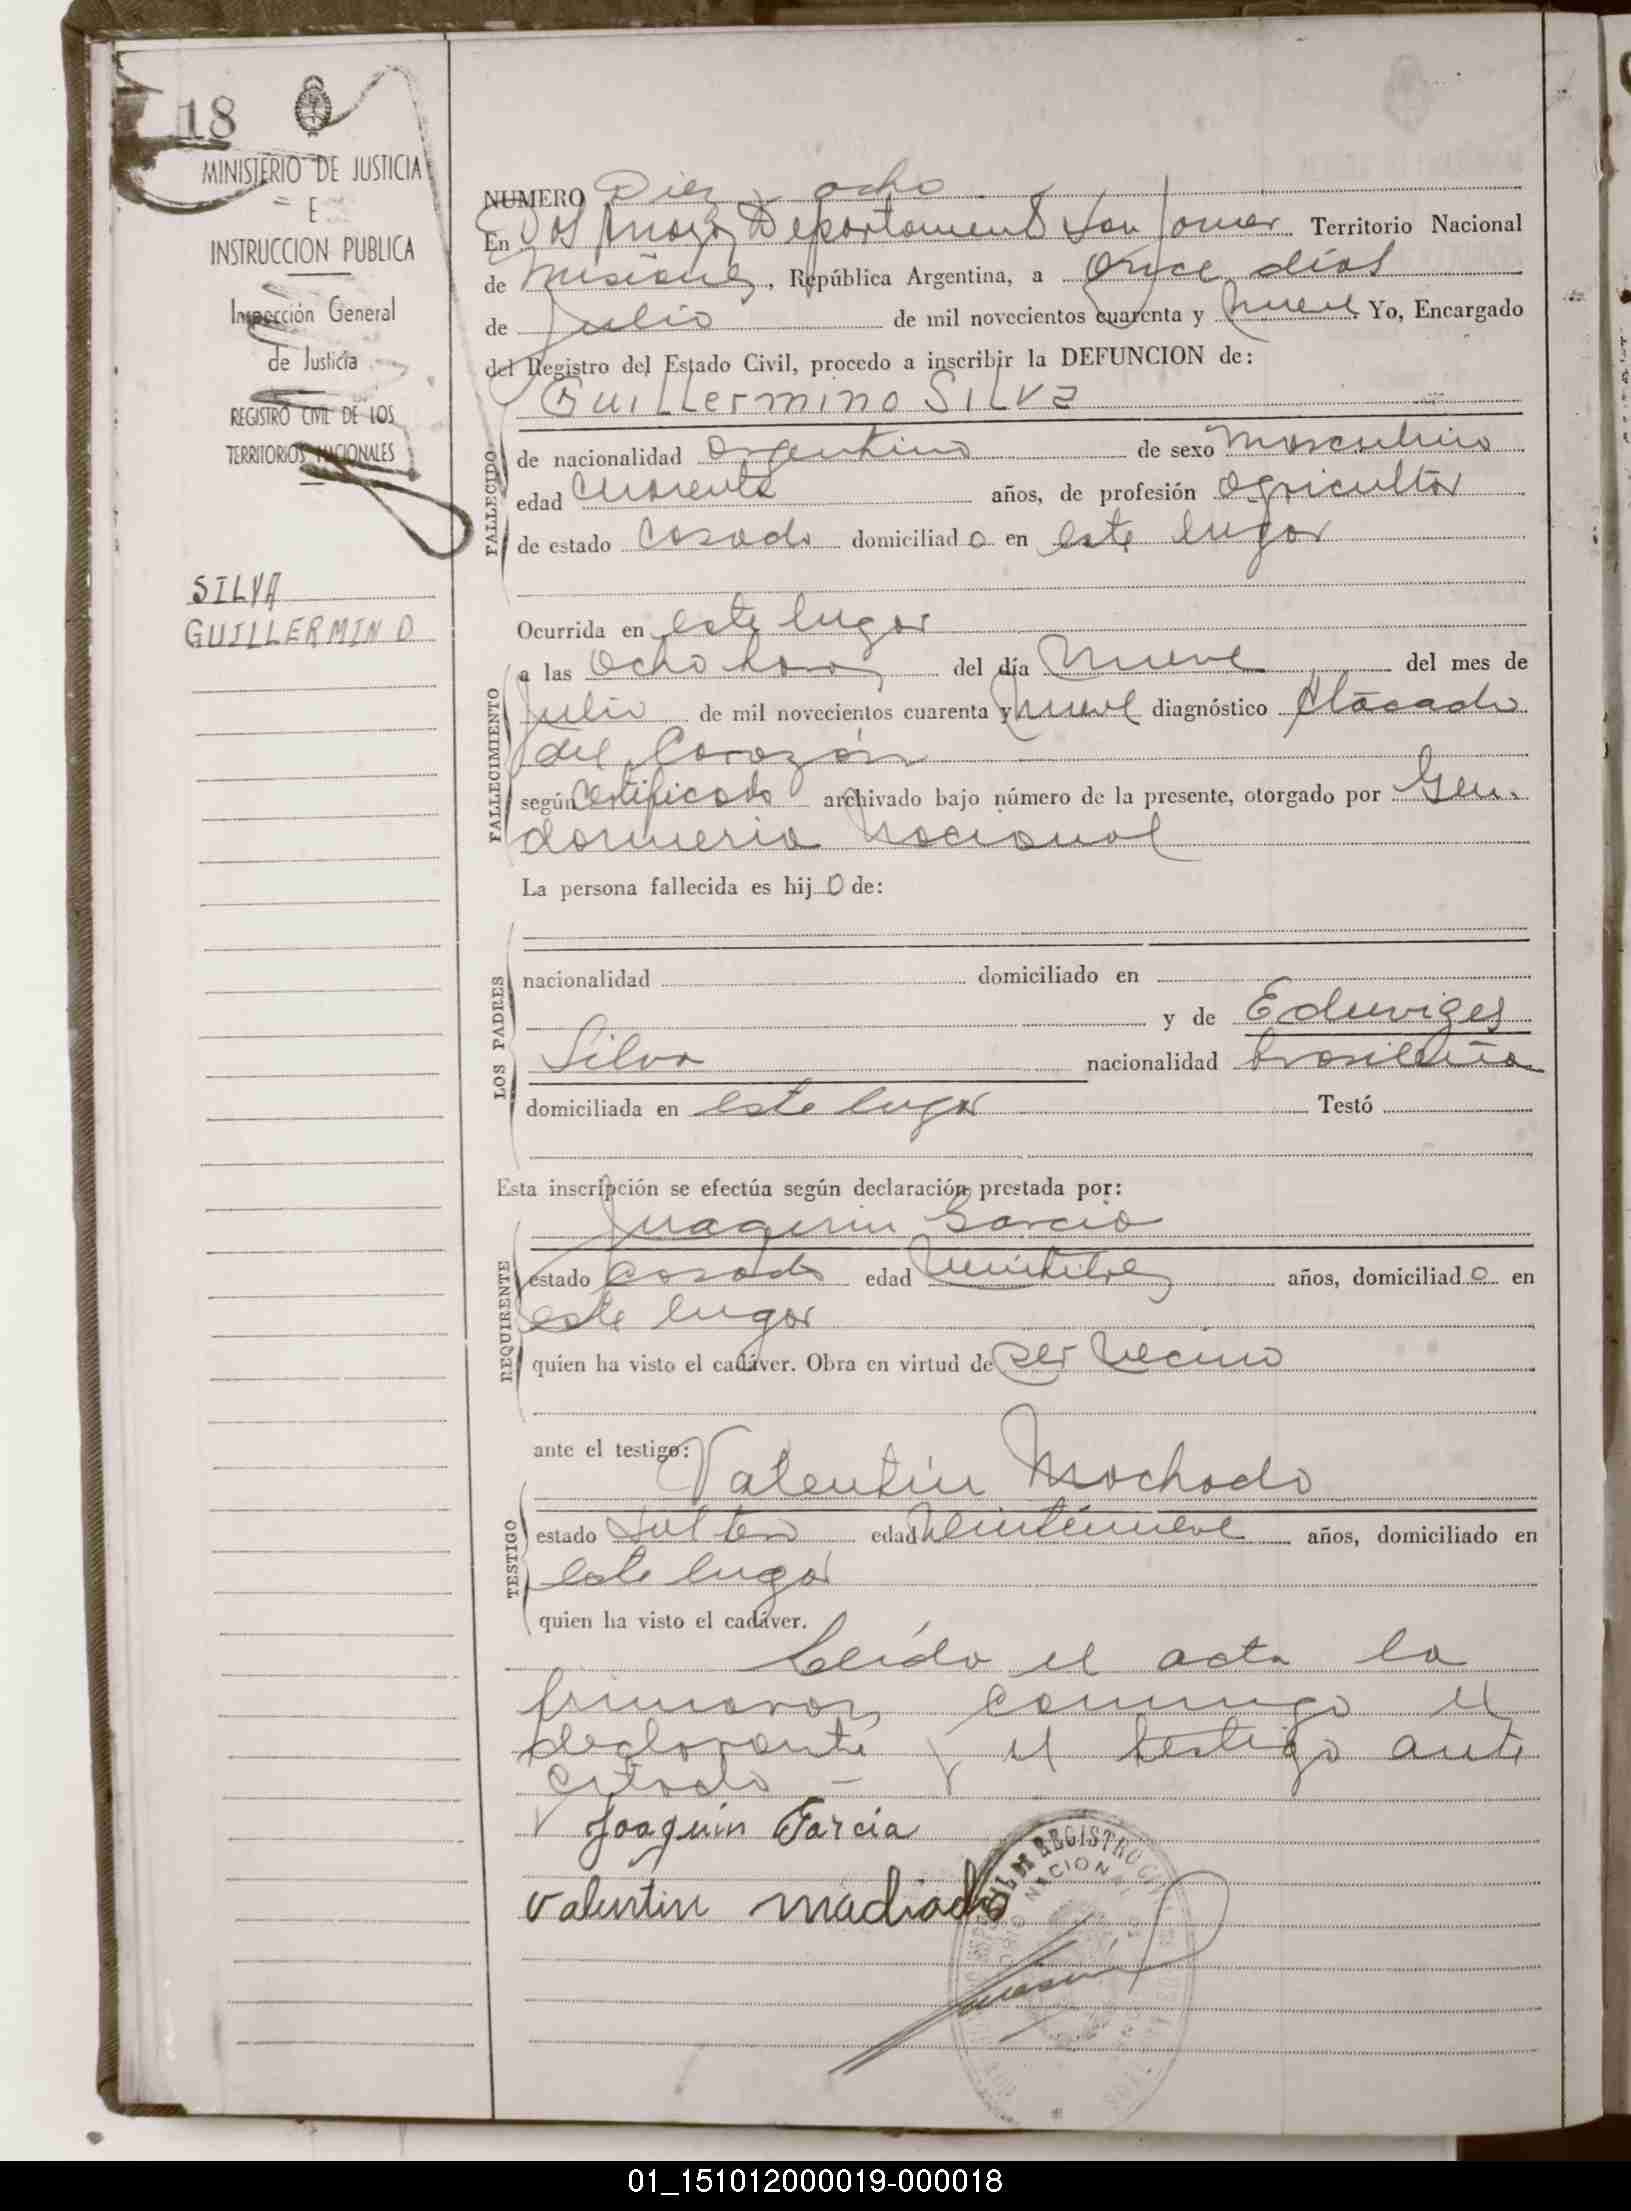 18
MINISTERIO DE JUSTICIA
E
INSTRUCCION PUBLICA
Inspección General
de Justicia
REGISTRO CIVIL DE LOS
TERRITORIOS NACIONALES
SILVA
GUILLERMINO
NUMERO Diez y ocho
En Dos Arroyos Departamento San Javier Territorio Nacional
de Misiones, República Argentina, a once días
de Julio de mil novecientos cuarenta y nueve Yo, Encargado
del Registro del Estado Civil, procedo a inscribir la DEFUNCION de:
GuiLLermino SiLva
FALLECIDO
de nacionalidad argentino de sexo masculino
edad cuarenta años, de profesión agricultor
de estado casado domiciliado en este lugar
Ocurrida en este lugar
FALLECIMIENTO
a las ocho horas del día nueve del mes de
Julio de mil novecientos cuarenta y nueve diagnóstico Atacado
del Corazón
según certificado archivado bajo número de la presente, otorgado por Gen.
darmeria Nacional
La persona fallecida es hijo de:
LOS PADRES
nacionalidad domiciliado en
y de Eduviges
Silva nacionalidad brasileña
domiciliada en este lugar Testó
Esta inscripción se efectúa según declaración prestada por:
Juaquin Garcia
REQUIRENTE
estado casado edad veintitres años, domiciliado en
este lugar
quien ha visto el cadáver. Obra en virtud de ser vecino
ante el testigo: Valentin Machado
TESTIGO
estado soltero edad veintinueve años, domiciliado en
este lugar
quien ha visto el cadáver.
Leída el acta la
firmaron conmigo el
declarante y el testigo ante
citado -
Joaquin Garcia
Valentin machado
REGISTRO CIVIL
NACIONAL
01_151012000019-000018